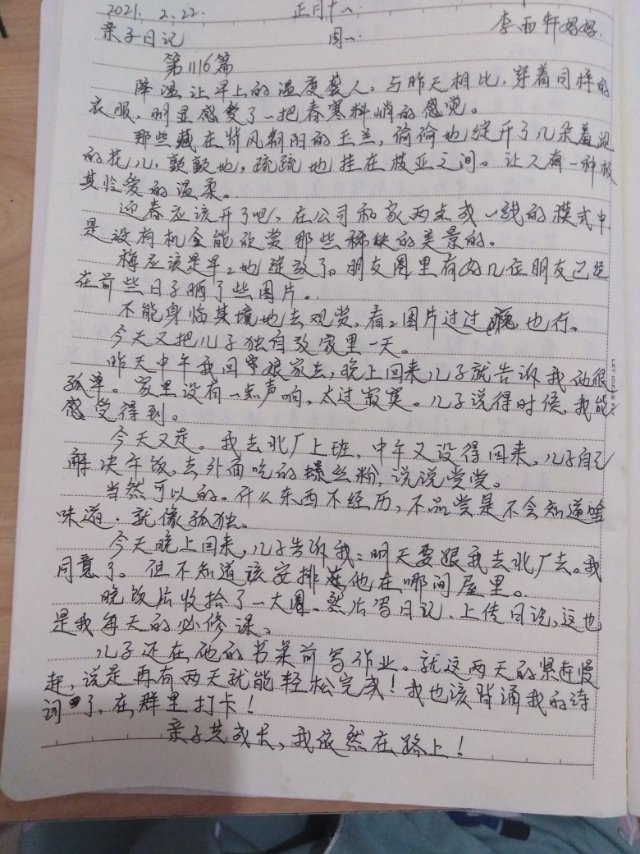 2021. 2.22. 正月十一 李雨轩妈妈
亲子日记 周一:
第1116篇
降温让早上的温度袭人,与昨天相比,穿着同样的
衣服,明显感受了一把春寒料峭的感觉。
那些藏在背风朝阳的玉兰,偷偷地绽开了几朵
的花儿,颤颤地,疏疏地挂在枝丫之间。让人有一种
其怜爱的温柔。
迎春应该开了吧,在公司和家两点成一线的模式中,
是没有机会能欣赏那些稀缺的美景的。
梅应该是早早地绽放了。朋友圈里有好几位朋友已经
在前些日子晒了些图片。
不能身临其境地去观赏,看看图片过过瘾也行。
今天又把儿子独自放家里一天。
昨天中午我回娘家去,晚上回来儿子就告诉我他很
孤单。家里没有一点声响,太过寂寞。儿子说得时候,我能
感受得到。
今天又是。我去北厂上班,中午又没得回来,儿子自己
解决午饭,去外面吃的螺丝粉,说说尝尝。
当然可以的。什么东西不经历,不品尝是不会知道啥
味道.就像孤独。
今天晚上回来,儿子告诉我:明天要跟我去北厂去。我
同意了。但不知道该安排他在哪间屋里。
晚饭后收拾了一大圈、然后写日记、上传日记,这也
是我每天的必修课。
儿子还在他的书桌前写作业。就这两天的紧赶慢
赶,说是再有两天就能轻松完成!我也该背诵我的诗
词了,在群里打卡!
亲子共成长,我依然在路上!